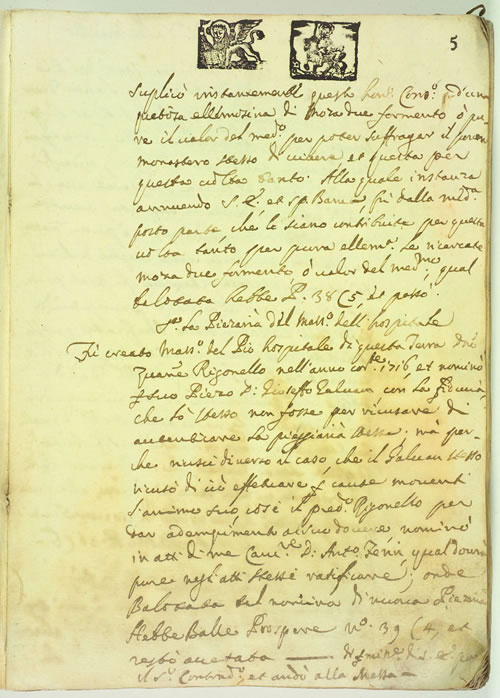 5
suplicò instantemente questo Cons.º d'una
ellemosina di Moza due formento ò pu
re il valor del med.º per poter suffragar il
monastero stesso di et questa per
questa volta tanto. Alla quale instanza
annuendo S. E. et sp. Banca, fù dalla med.ª
posto parte che le siano contribuite per questa
volta tanto per pura ellem.ª le ricercate
moza due formento, ò valor del med.mo, qual
balotata hebbe P. 38 C 5, et passò.
La Pieziaria del Mass.º dell'hospitale
Fù creato Mass.º del Pio hospitale di questa Terra
Rigonello nell'anno 1716 et nominò
suo Piezo D. Giuseppe Galuan con la fiducia
che lo stesso non fosse per ricusare di
autenticare la pieggiaria stessa, mà per
che riuscì diverso il caso, che il Galuan stesso
ricusò di ciò effetuare cause moventi
l'animo suo così il pred.º Rigonello per
dar adempimento al suo dovere nominò
in atti di me Canc.re D. Ant.º qual dourà
pure negli atti stessi ratificare; onde
Balotata tal nomina di nuova Piezaria
Hebbe Balle Prospere n.º 39 C 4, et
restò acetata
il S.r et andò alla Messa